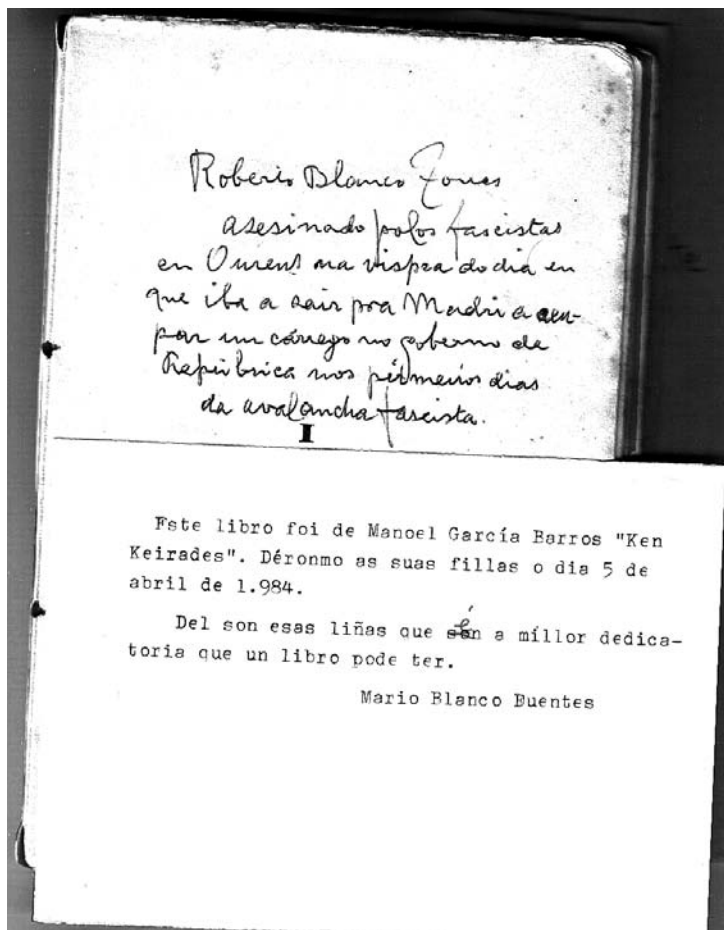 Roberto Blanco Torres
asesinado polos fascistas
en Ourens na vispra do dia en
que iba a sair pra Madri a ocu-
par un cárrego no goberno de
República nos pirmeiros dias
da avalancha fascista.
I
Este libro foi de Manoel García Barros "Ken
Keirades". Déronmo as suas fillas o dia 5 de
abril de 1.984.
Del son esas liñas que é a millor dedica-
toria que un libro pode ter.
Mario Blanco Fuentes